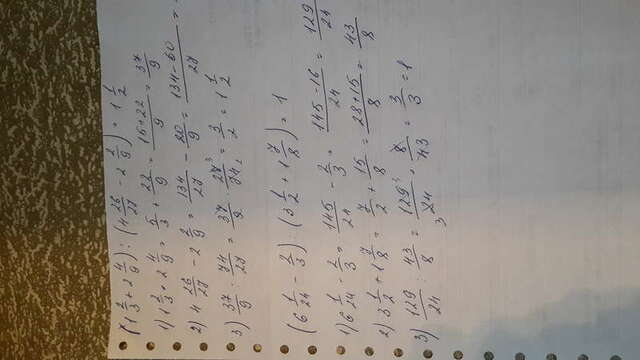 (1 2/3 + 2 4/9) : (4 26/27 - 2 2/9) = 1 1/2
1) 1 2/3 + 2 4/9 = 5/3 + 22/9 = 15+22/9 = 37/9
2) 4 26/27 - 2 2/9 = 134/27 - 20/9 = 134-60/27 =
3) 37/9 : 74/27 = 37/9 · 27/74 = 3/2 = 1 1/2
(6 1/24 - 2/3) : (3 1/2 + 1 7/8) = 1
1) 6 1/24 - 2/3 = 145/24 - 2/3 = 145-16/24 = 129/24
2) 3 1/2 + 1 7/8 = 7/2 + 15/8 = 28+15/8 = 43/8
3) 129/24 : 43/8 = 129/24 · 8/43 = 3/3 = 1